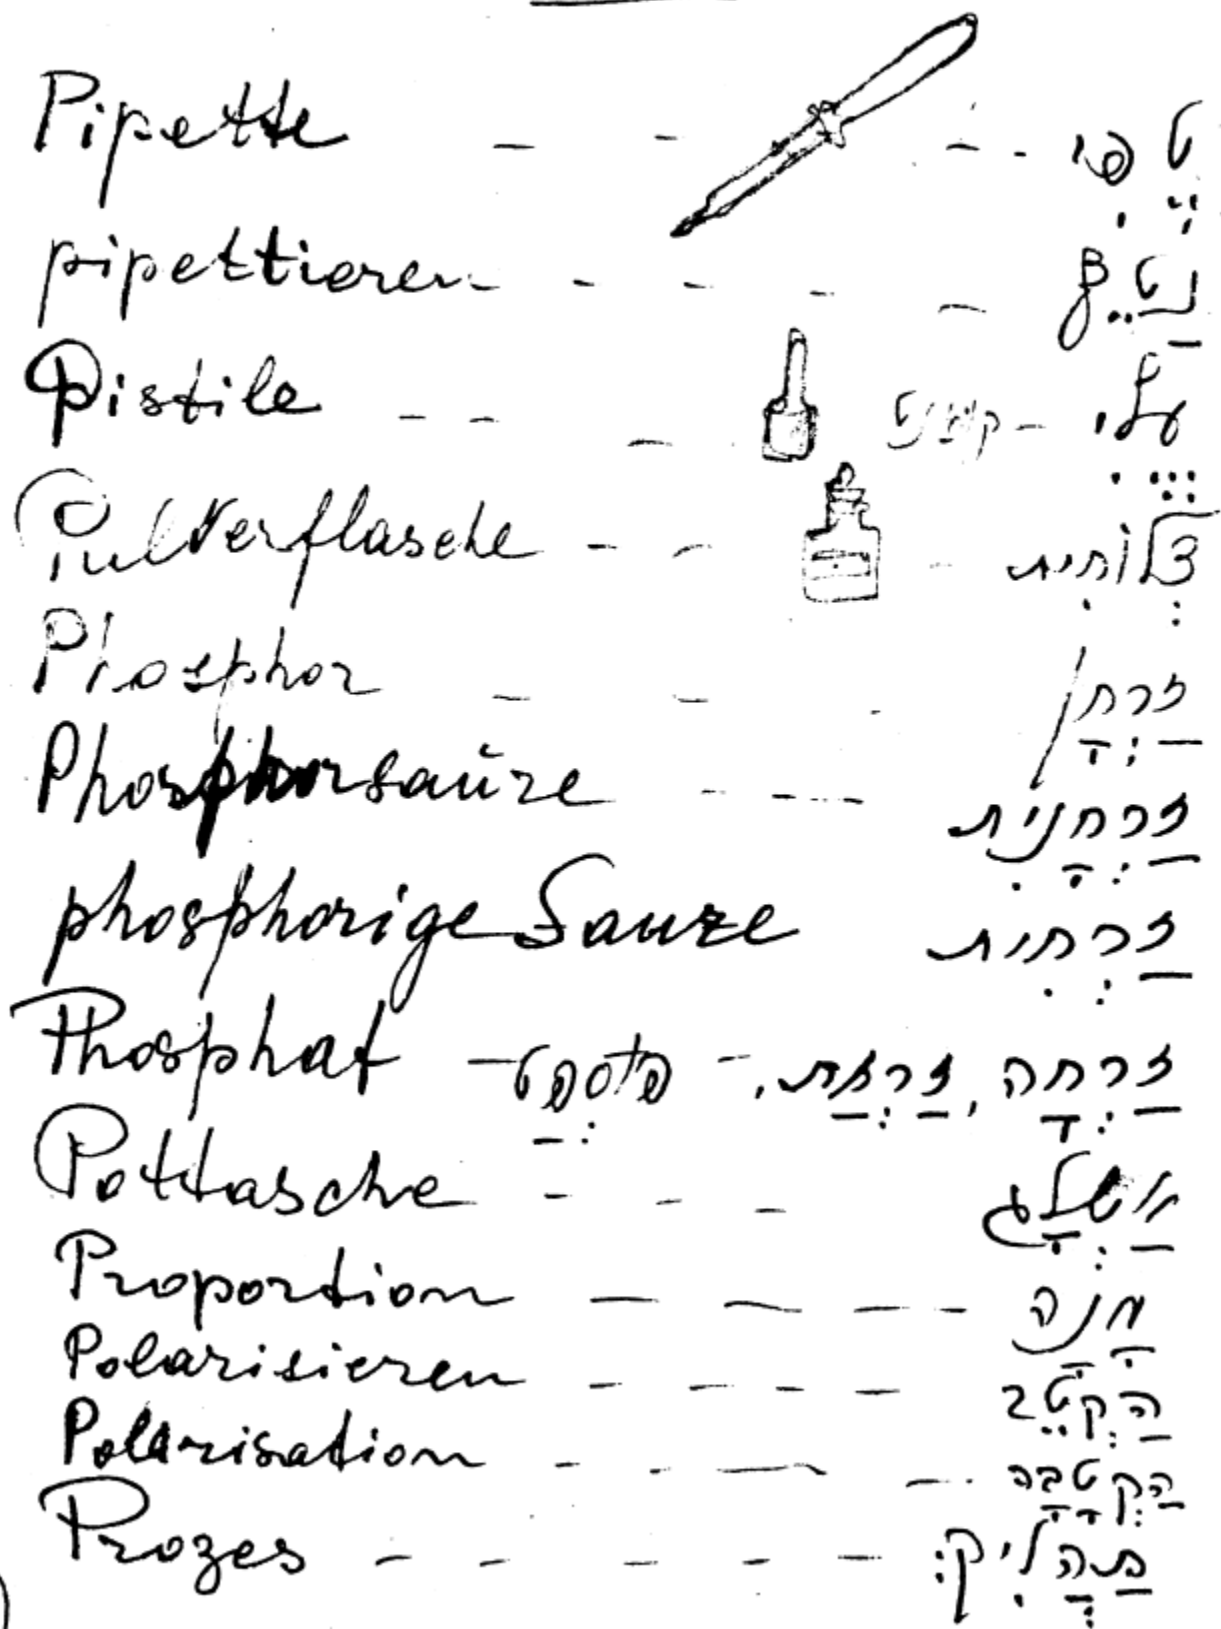 Pipette - - - - טפי
pipettieren - - - - נטף
Pistile - - - - עלי
Pulverflasche - - - צלוחית
Phosphor - - - זרחן
Phosphorsaüre - - - - זרחנית
phosphorige Saure זרחית
Phosphat - פוספט - זרחה, זרחת,
Pottasche - - - אשלג
Proportion - - - - מנה
Polarisieren - - - - הקטב
Polarisation - - - - הקטבה
Prozes - - - - - תהליך: